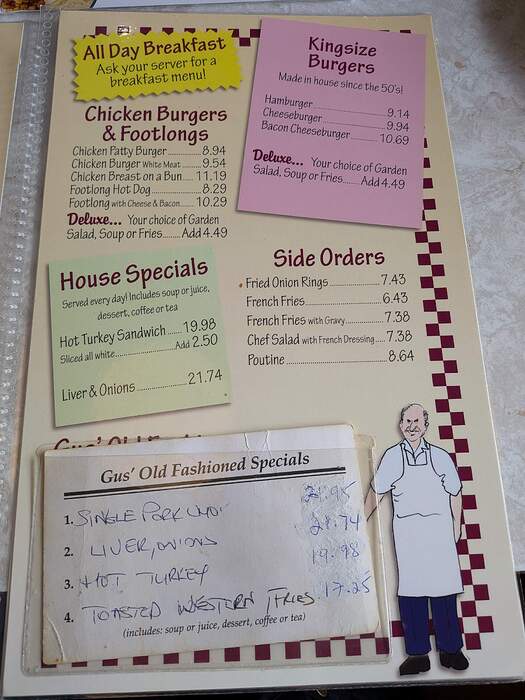 All Day Breakfast
Ask your server for a
breakfast menu!
Chicken Burgers
& Footlongs
Chicken Patty Burger 8.94
Chicken Burger White Meat 9.54
Chicken Breast on a Bun 11.19
Footlong Hot Dog 8.29
Footlong with Cheese & Bacon 10.29
Deluxe... Your choice of Garden
Salad, Soup or Fries Add 4.49
Kingsize
Burgers
Made in house since the 50's!
Hamburger 9.14
Cheeseburger 9.94
Bacon Cheeseburger 10.69
Deluxe... Your choice of Garden
Salad, Soup or Fries Add 4.49
House Specials
Served every day! Includes soup or juice,
dessert, coffee or tea
Hot Turkey Sandwich 19.98
Sliced all white Add 2.50
Liver & Onions 21.74
Side Orders
Fried Onion Rings 7.43
French Fries 6.43
French Fries with Gravy 7.38
Chef Salad with French Dressing 7.38
Poutine 8.64
Gus' Old Fashioned Specials
1. SINGLE PORK CHOP
2. LIVER, ONIONS 21.74
3. HOT TURKEY 19.98
4. TOASTED WESTERN / FRIES 17.25
(includes: soup or juice, dessert, coffee or tea)